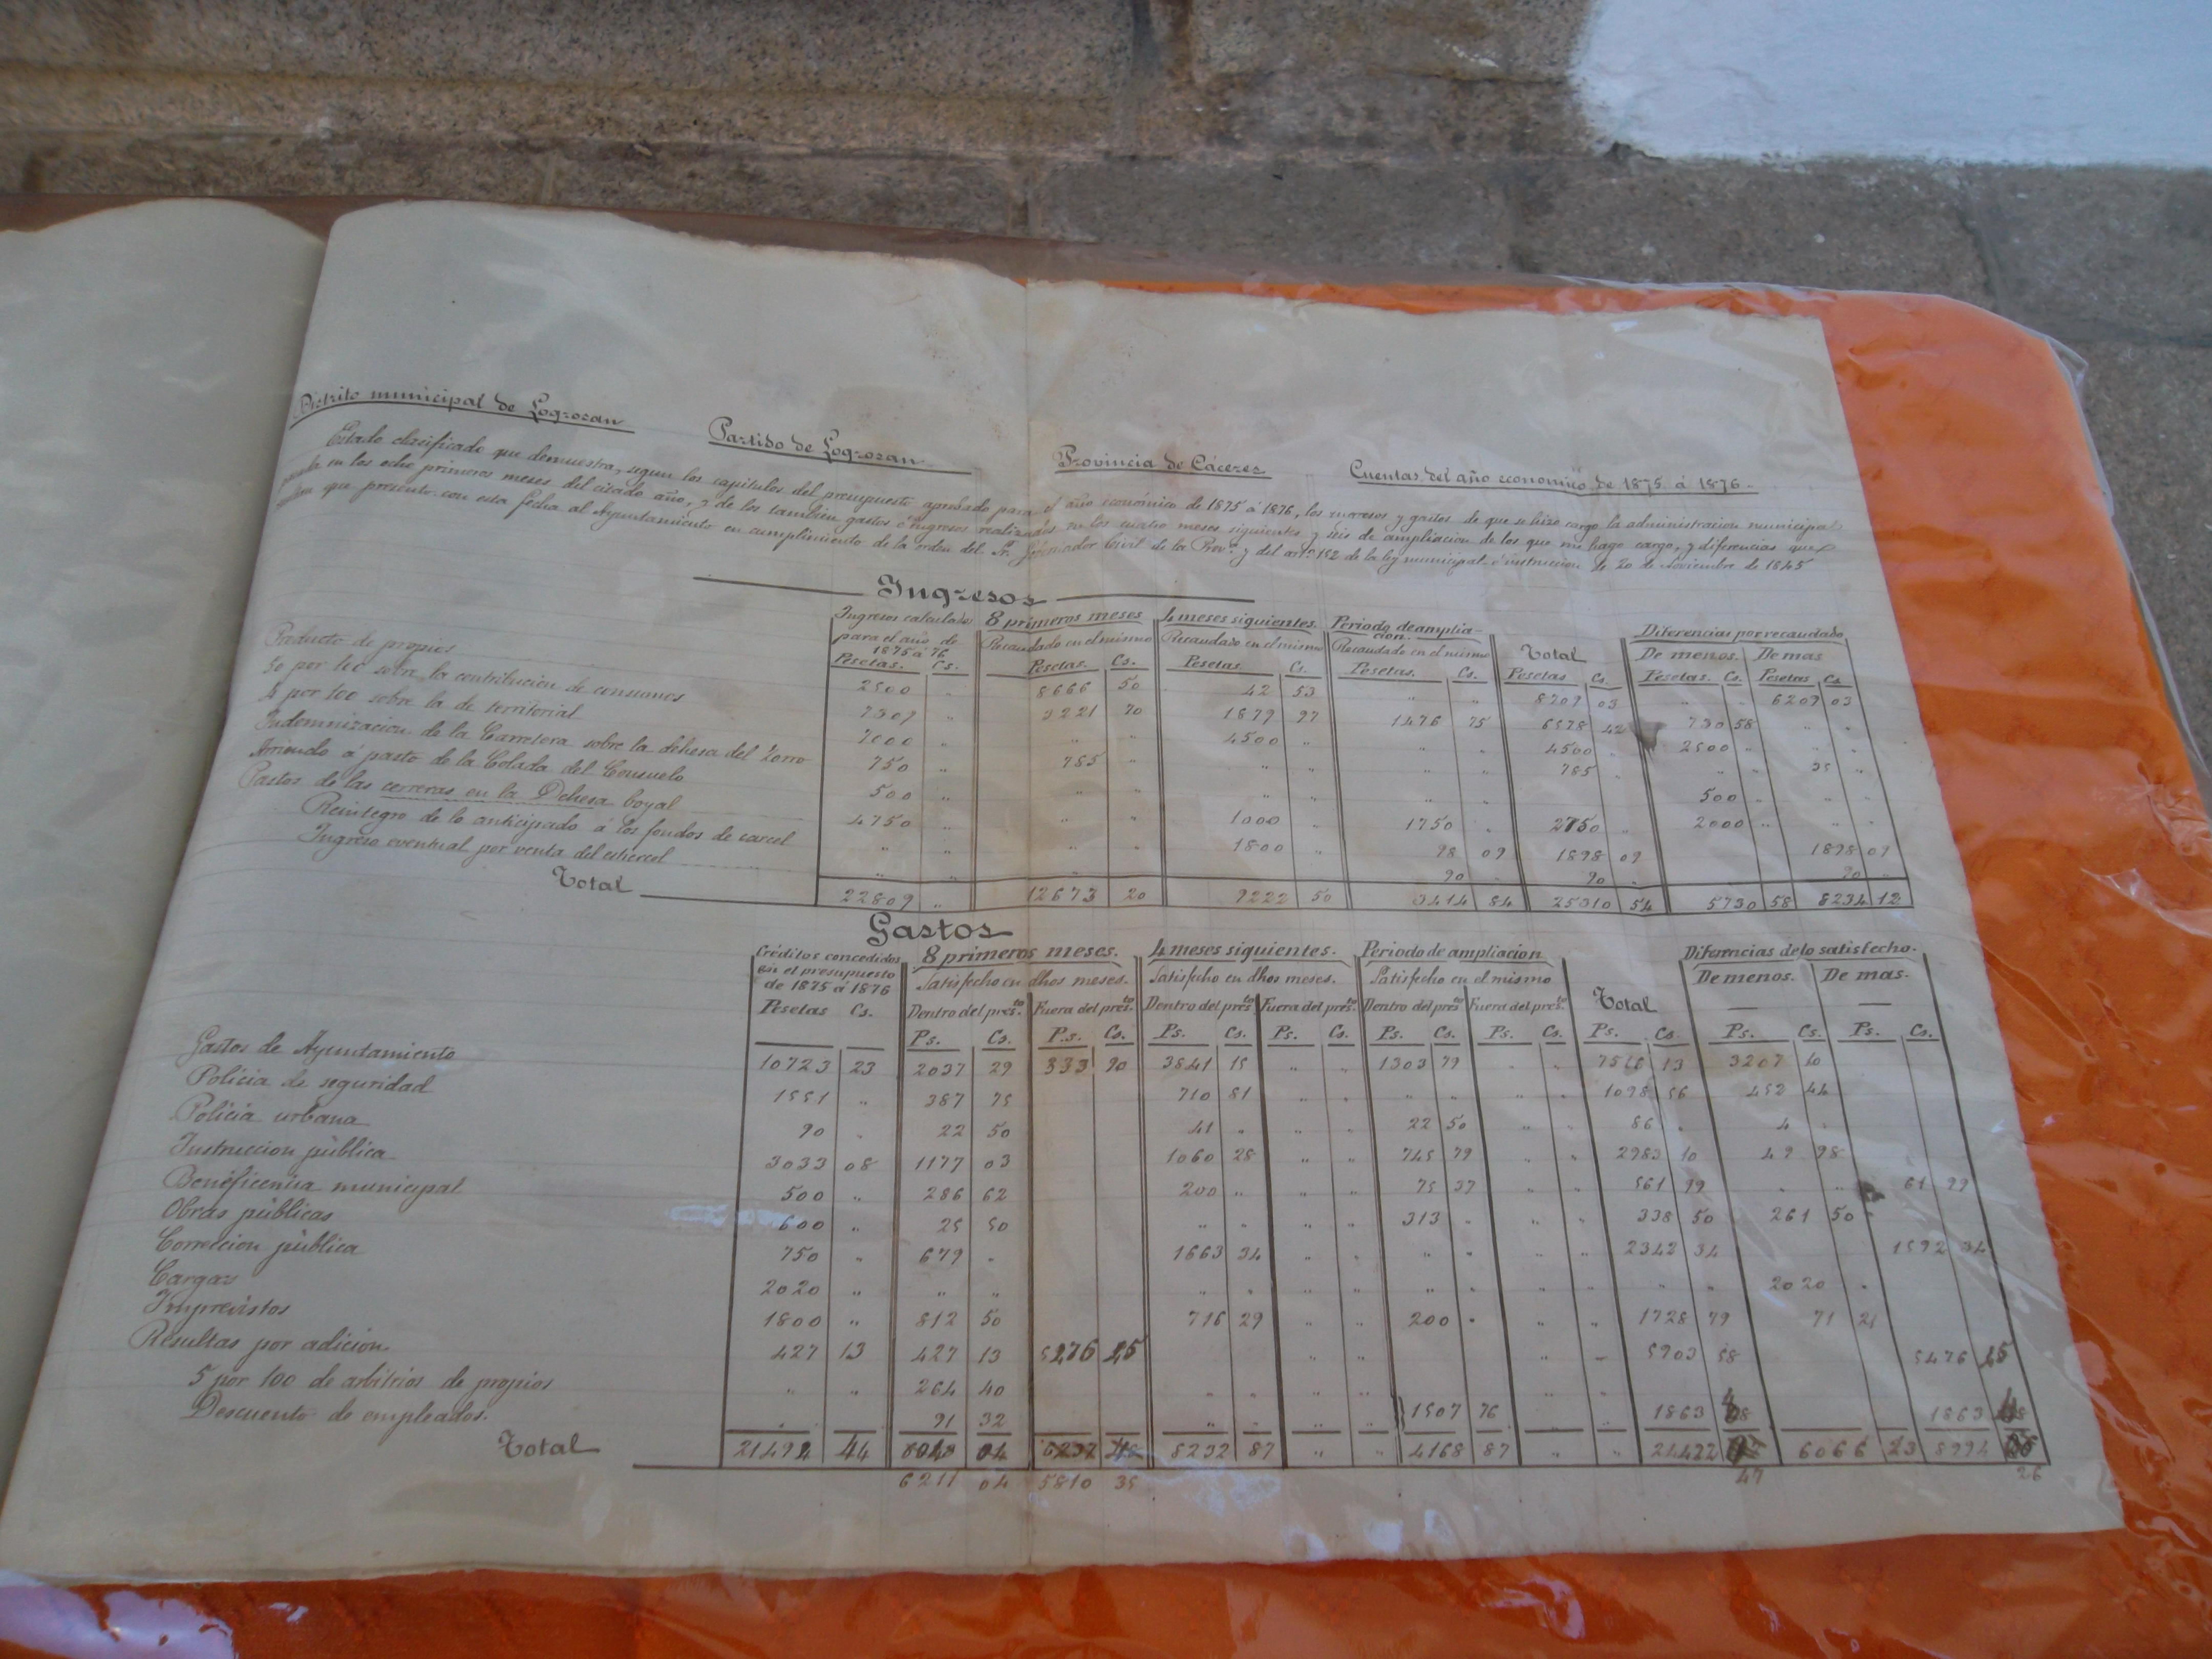 Distrito municipal de Logrosan Partido de Logrosan Provincia de Cáceres Cuentas del año economico de 1875 á 1876
Estado clasificado que demuestra, segun los capitulos del presupuesto aprobado para el año económico de 1875 á 1876, los ingresos y gastos de que se hizo cargo la administracion municipal
en los ocho primeros meses del citado año, y de los tambien gastos é ingresos realizados en los cuatro meses siguientes y seis de ampliacion de los que me hago cargo, y diferencias que
que presento con esta fecha al Ayuntamiento en cumplimiento de la orden del Sr. Gobernador Civil de la Provª y del artº 152 de la ley municipal é instruccion de 20 de Noviembre de 1845
Ingresos
Ingresos calculados 8 primeros meses 4 meses siguientes. Periodo de amplia-
para el año de Recaudado en el mismo Recaudado en el mismo cion. Total Diferencias por recaudado
1875 á 76 Recaudado en el mismo De menos. De mas
Pesetas. Cs. Pesetas. Cs. Pesetas. Cs. Pesetas. Cs. Pesetas Cs. Pesetas. Cs. Pesetas Cs.
Producto de propios 2500 " 8666 50 42 53 " " 8709 03 " " 6209 03
50 por 100 sobre la contribucion de consumos 7309 " 3221 70 1879 97 1476 75 6578 42 730 58 " "
4 por 100 sobre la de territorial 7000 " " " 4500 " " " 4500 " 2500 " " "
Indemnizacion de la Carretera sobre la dehesa del Zorro 750 " 785 " " " " " 785 " " " 35 "
Arriendo á pasto de la Colada del Consuelo 500 " " " " " " " 500 " " "
Pastos de las cerreras en la Dehesa boyal 4750 " " " 1000 " 1750 " 2750 " 2000 " " "
Reintegro de lo anticipado á los fondos de carcel " " " " 1800 " 98 09 1898 09 1898 09
Ingreso eventual por venta del estiercol " " 90 " 90 " 90 "
Total 22809 " 12673 20 9222 50 3414 84 25310 54 5730 58 8234 12
Gastos
Créditos concedidos 8 primeros meses. 4 meses siguientes. Periodo de ampliacion Diferencias de lo satisfecho.
en el presupuesto Satisfecho en dhos meses. Satisfecho en dhos meses. Satisfecho en el mismo De menos. De mas.
de 1875 á 1876
Pesetas Cs. Dentro del presto Fuera del presto Dentro del presto Fuera del presto Dentro del presto Fuera del presto Total
Ps. Cs. P.s. Cs. Ps. Cs. Ps. Cs. Ps. Cs. Ps. Cs. Ps. Cs. Ps. Cs. Ps. Cs.
Gastos de Ayuntamiento 10723 23 2037 29 333 90 3841 15 " " 1303 79 " " 13 3207 10
Policia de seguridad 1551 " 387 75 710 81 " " " " " " 1098 56 452 44
Policia urbana 90 " 22 50 41 " " " 22 50 " " 86 " 4 "
Instruccion pública 3033 08 1177 03 1060 28 " " 745 79 " " 2983 10 49 98
Beneficencia municipal 500 " 286 62 200 " " " 75 37 " " 561 99 " " 61 99
Obras públicas 600 " 25 50 " " " " 313 " " " 338 50 261 50
Correccion pública 750 " 679 " 1663 34 " " " " " " 2342 34 1592 34
Cargas 2020 " " " " " " " " " " " " " 2020 "
Imprevistos 1800 " 812 50 716 29 " " 200 " " " 1728 79 71 21
Resultas por adicion 427 13 427 13 5276 45 " " " " 5903 58 5476 45
5 por 100 de arbitrios de propios " " 264 40 " " " " " "
Descuento de empleados. " " 91 32 " " " " 1507 76 " " 1863 48 1863 48
Total 21494 44 04 8232 87 " " 4168 87 " " 6066 23 8994
6211 04 5810 35 47 26